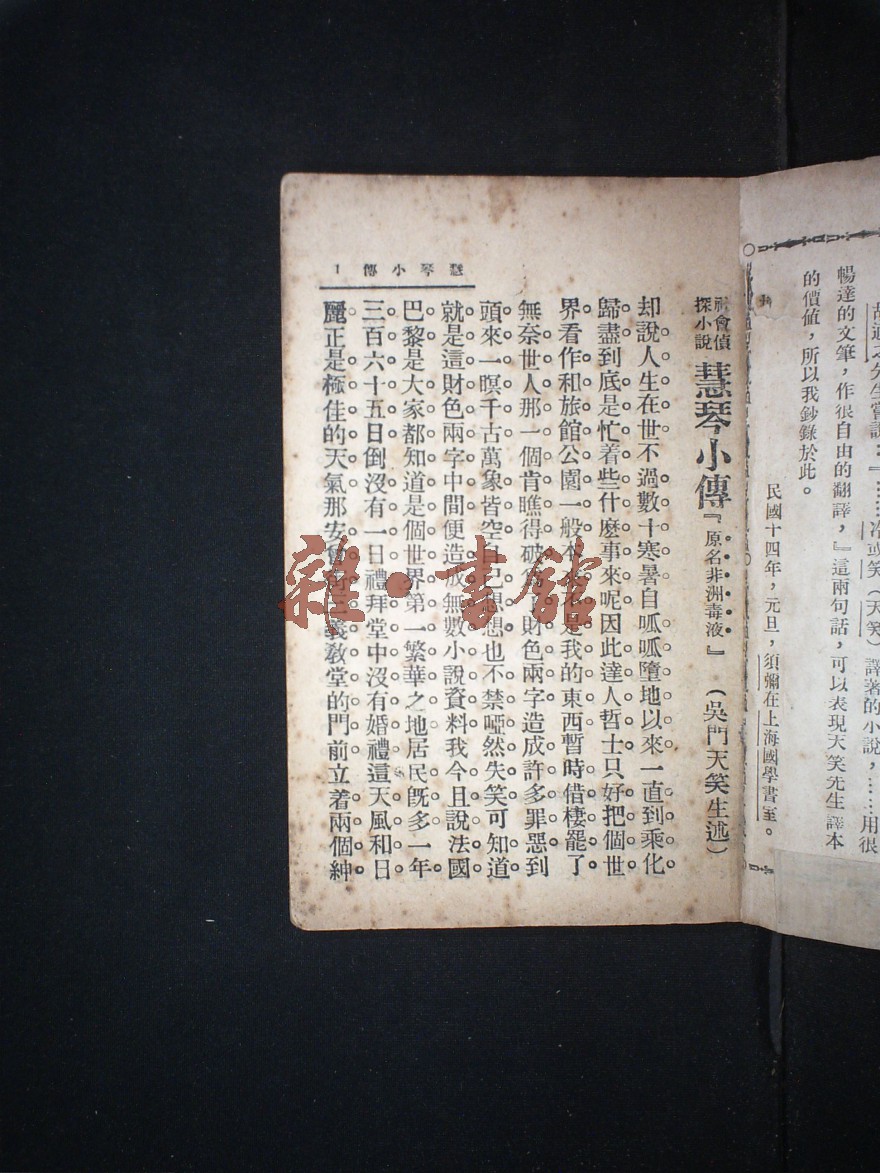 暢達的文筆，作很自由的翻譯，』這兩句話，可以表現天笑先生譯本
的價值，所以我鈔錄於此。
民國十四年，元旦，須彌在上海國學書室。
慧琴小傳 1
社會偵探小說 慧琴小傳『原名非洲毒液』 （吳門天笑生述）
却說人生在世不過數十寒暑自呱呱墮地以來一直到乘化
歸盡到底是忙着些什麼事來呢因此達人哲士只好把個世
界看作和旅館公園一般本不是我的東西暫時借棲罷了
無奈世人那一個肯瞧得破為了財色兩字造成許多罪惡到
頭來一暝千古萬象皆空自己想想也不禁啞然失笑可知道
就是這財色兩字中間便造成無數小說資料我今且說法國
巴黎是大家都知道是個世界第一繁華之地居民既多一年
三百六十五日倒沒有一日禮拜堂中沒有婚禮這天風和日
麗正是極佳的天氣那安 義教堂的門前立着兩個紳
雜·書館